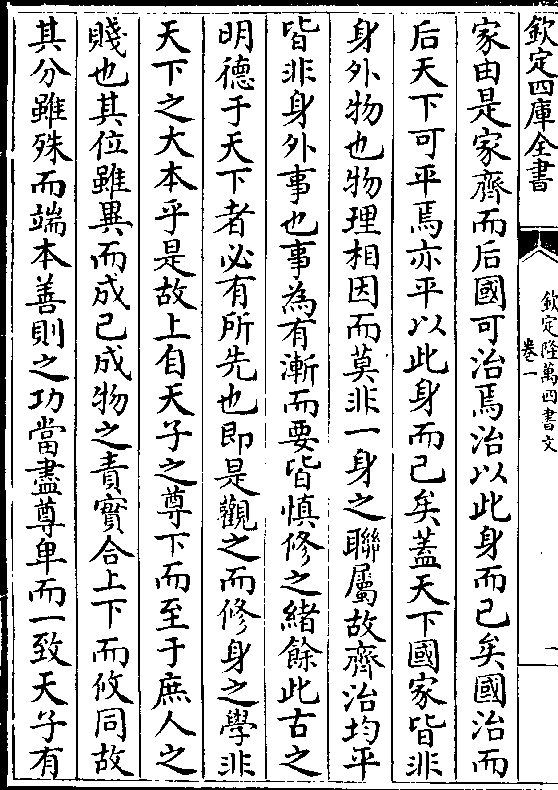 欽定四庫全書
欽定隆萬四書文
卷一
一
家由是家齊而后國可治焉治以此身而已矣國治而
后天下可平焉亦平以此身而已矣蓋天下國家皆非
身外物也物理相因而莫非一身之聯屬故齊治均平
皆非身外事也事為有漸而要皆慎修之緒餘此古之
明德于天下者必有所先也即是觀之而修身之學非
天下之大本乎是故上自天子之尊下而至于庶人之
賤也其位雖異而成己成物之責實合上下而攸同故
其分雖殊而端本善則之功當盡尊卑而一致天子有